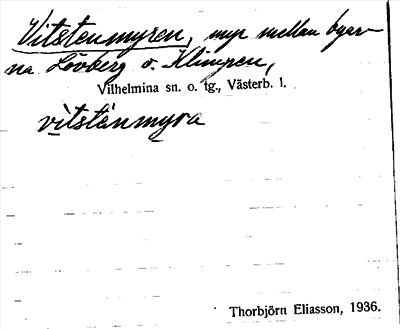 Vitstenmyren, myr mellan byar-
na Lövberg o. Klimpen,
Vilhelmina sn. o. tg., Västerb. l.
vitstànmyra
Thorbjörn Eliasson, 1936.